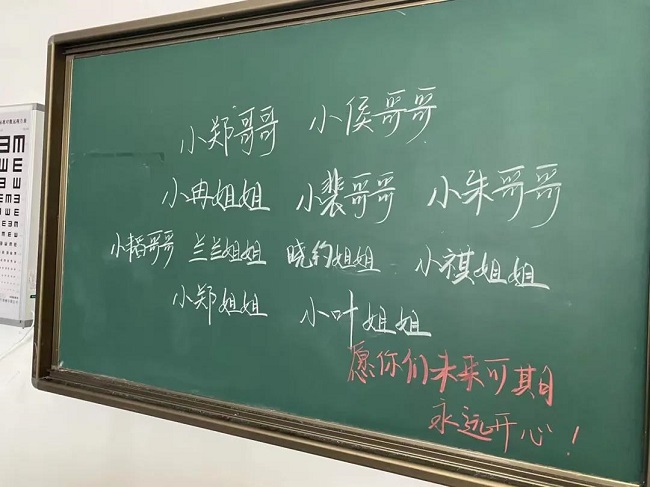 小郑哥哥 小侯哥哥
小冉姐姐 小裴哥哥 小朱哥哥
小韬哥哥 兰兰姐姐 晓钧姐姐 小祺姐姐
小郑姐姐 小叶姐姐
愿你们未来可期
永远开心！